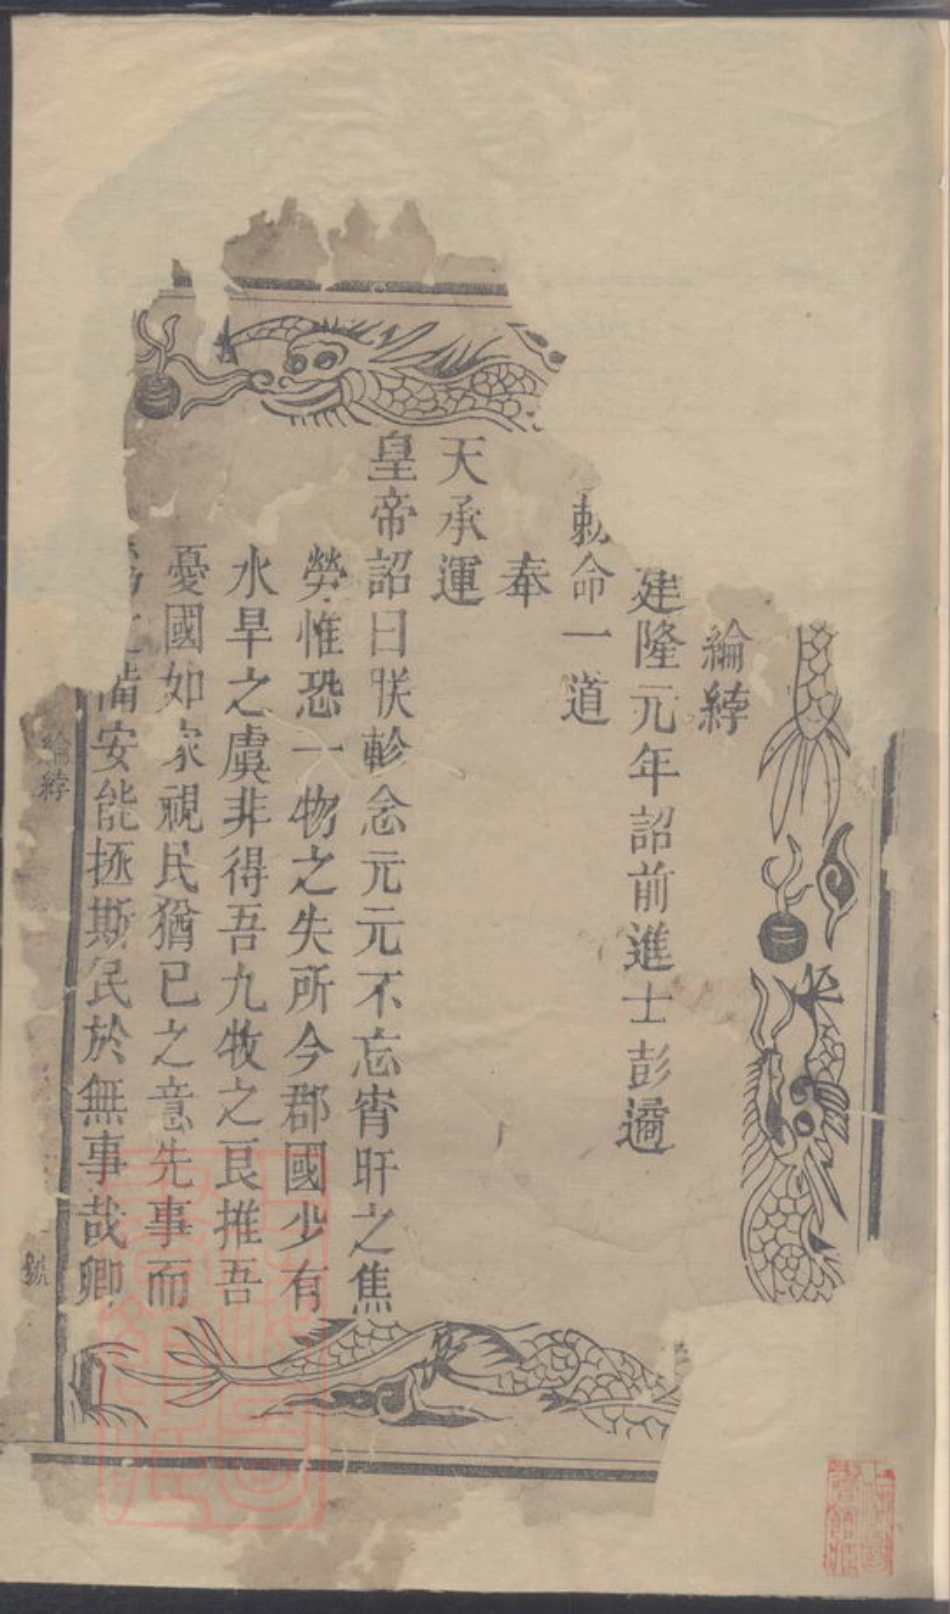 綸綍
建隆元年詔前進士彭遹
勅命一道
奉
天承運
皇帝詔曰朕軫念元元不忘宵旰之焦
勞惟恐一物之失所今郡國少有
水旱之虞非得吾九牧之良推吾
憂國如家視民猶已之意先事而
備安能拯斯民於無事哉卿
綸綍
號